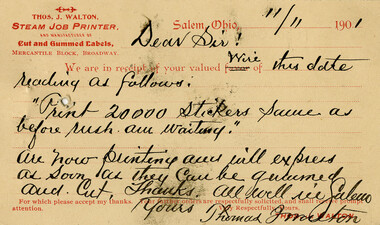 THOS. J. WALTON,
STEAM JOB PRINTER,
AND MANUFACTURER OF
Cut and Gummed Labels,
MERCANTILE BLOCK, BROADWAY.
Salem, Ohio, 11/11 1901
Dear Sir!
We are in receipt of your valued Wire of this date
reading as follows:
"Print 20000 stickers same as
before rush. am waiting."
are now printing and will express
as soon as they can be gummed
and Cut, Thanks. All well in Salem
For which please accept my thanks. further orders are respectfully solicited, and shall receive prompt
attention.
Yours Respectfully Yours,
Thomas THOS. J. WALTON.